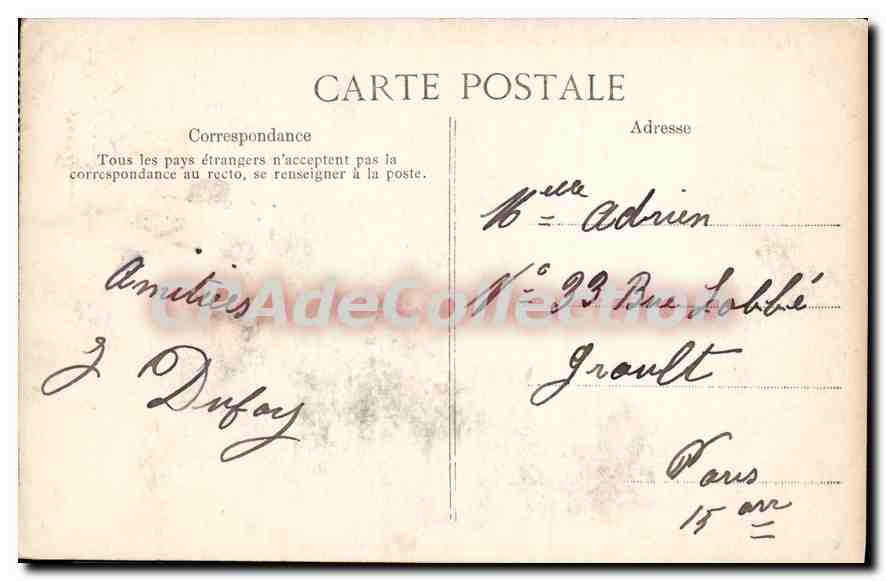 CARTE POSTALE
Correspondance
Tous les pays étrangers n'acceptent pas la
correspondance au recto, se renseigner à la poste.
Amitiées
J Dufoy
Adresse
Melle Adrien
No 33 Rue Lobbé
Groult
Paris
15 arr
CPAdeCollection